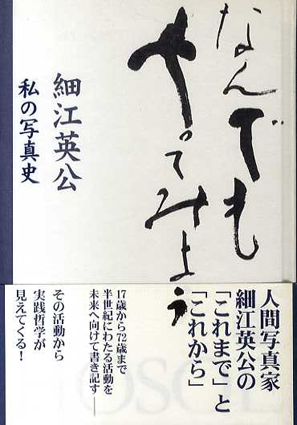 なんでも
やってみよう
細江英公
私の写真史
人間写真家
細江英公の
「これまで」と
「これから」
17歳から72歳まで
半世紀にわたる活動を
未来へ向けて書き記す——
その活動から
実践哲学が
見えてくる!